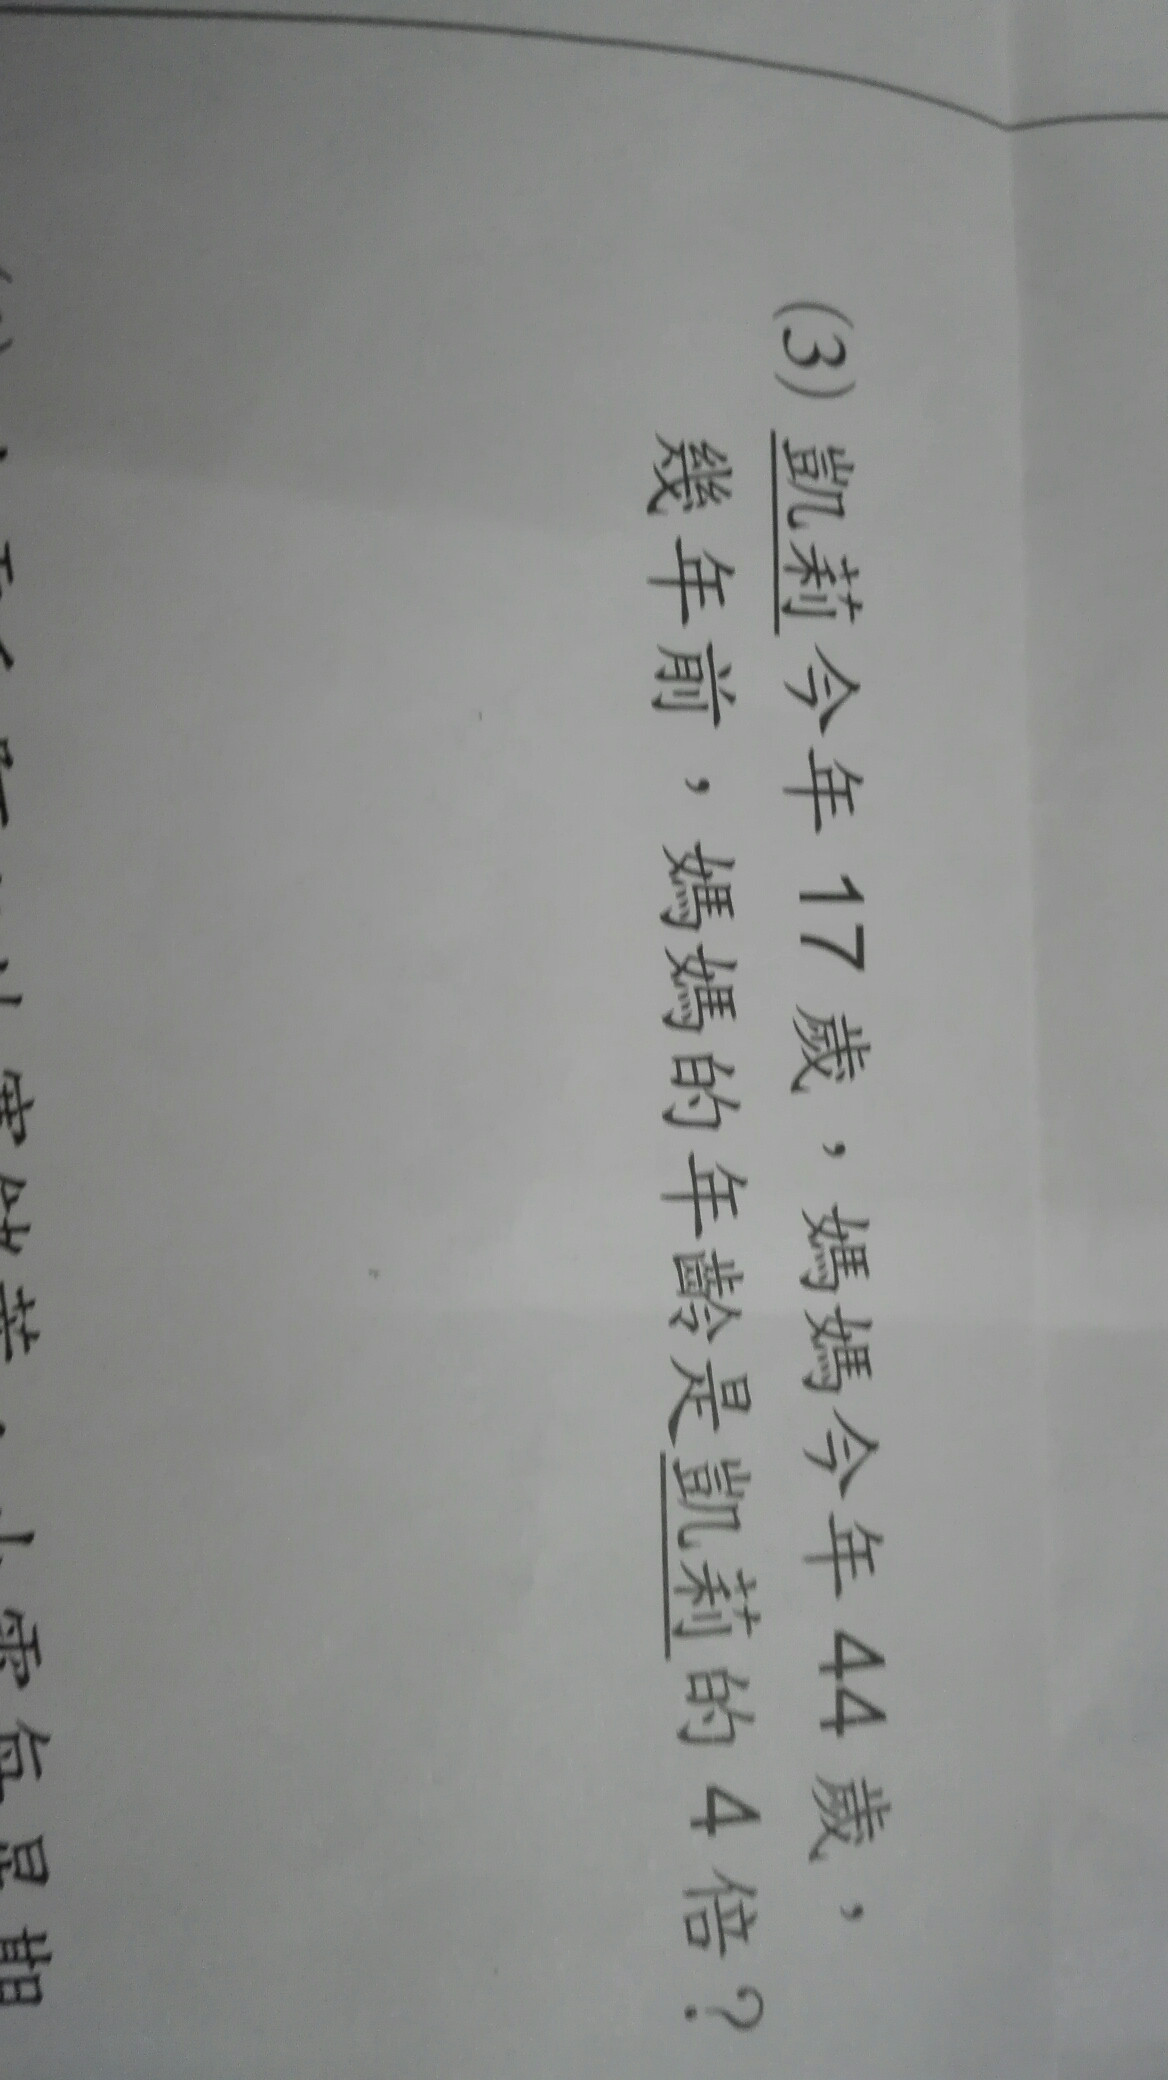 (3) 凱莉今年 17 歲，媽媽今年 44 歲，
幾年前，媽媽的年齡是凱莉的 4 倍？